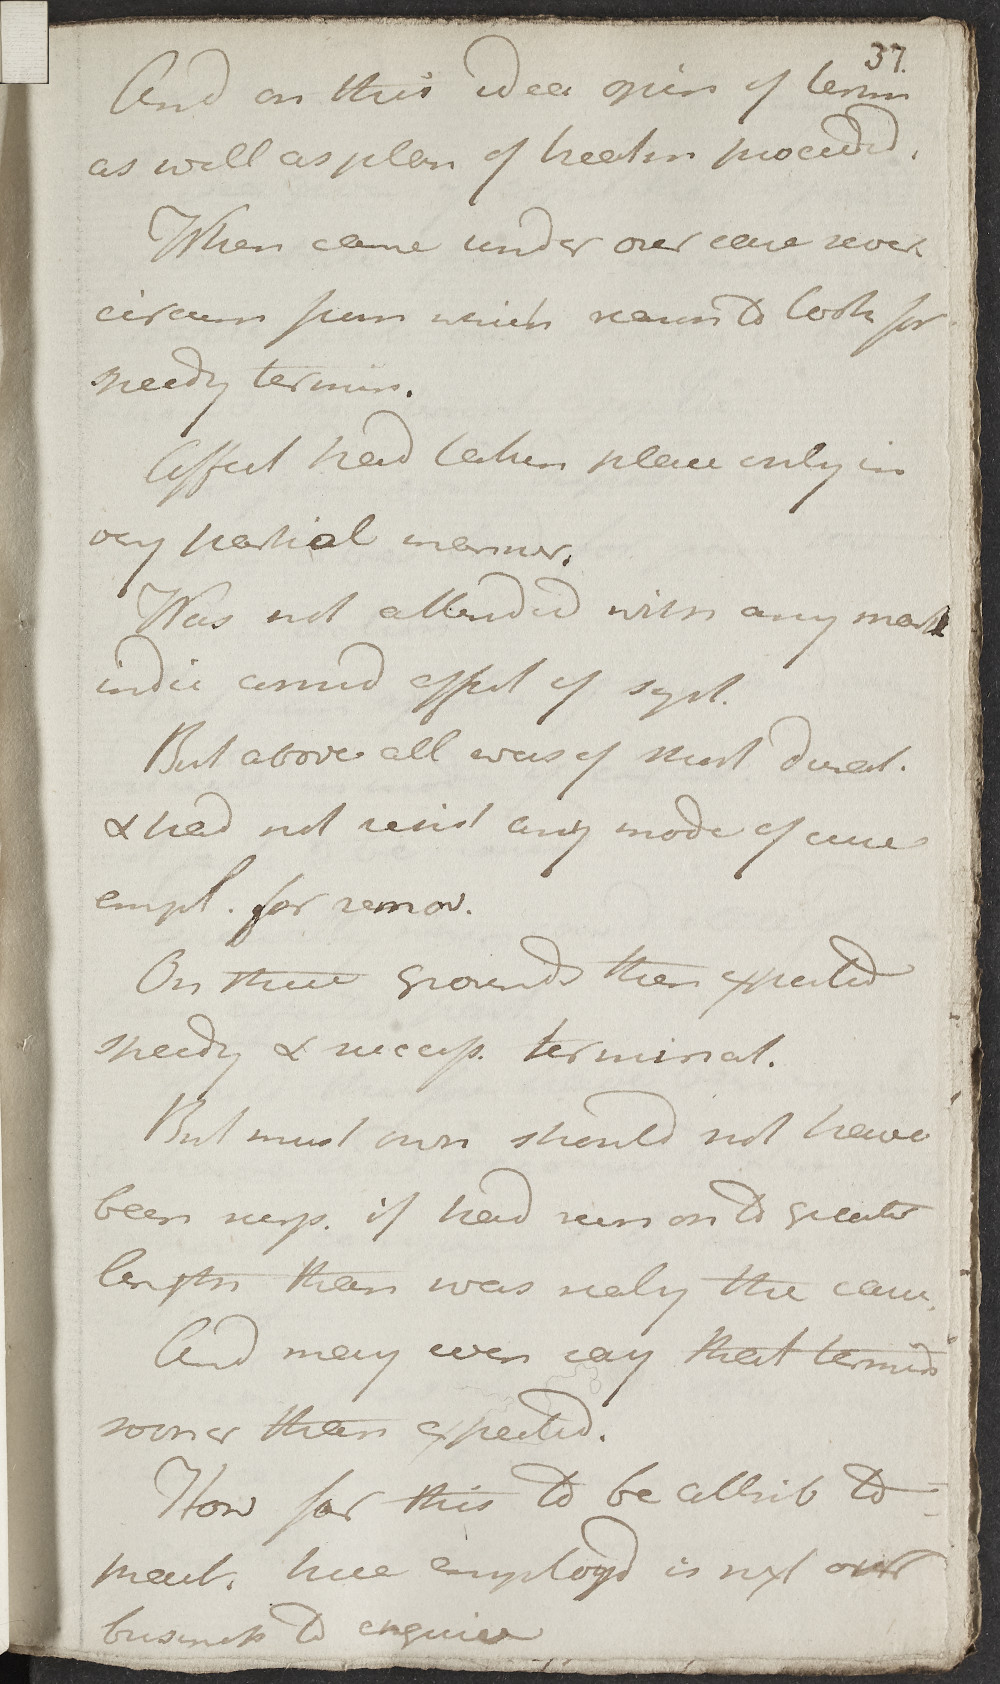 37.
And on this idea opin of term
as well as plan of treatm proceeded.
When came under our care sever
circum from which reason to look for
speedy termin.
Affect had taken place only in
very partial manner.
Was not attended with any mark
indic affect of syst.
But above all was of short durat.
& had not resist any mode of cure
empl. for remov.
On these grounds then expected
speedy & success. terminat.
But must own should not have
been surp. if had run on to greater
length than was realy the case.
And may even say that termin
sooner than expected.
How far this to be attrib to
pract. here employd is next our
business to enquire